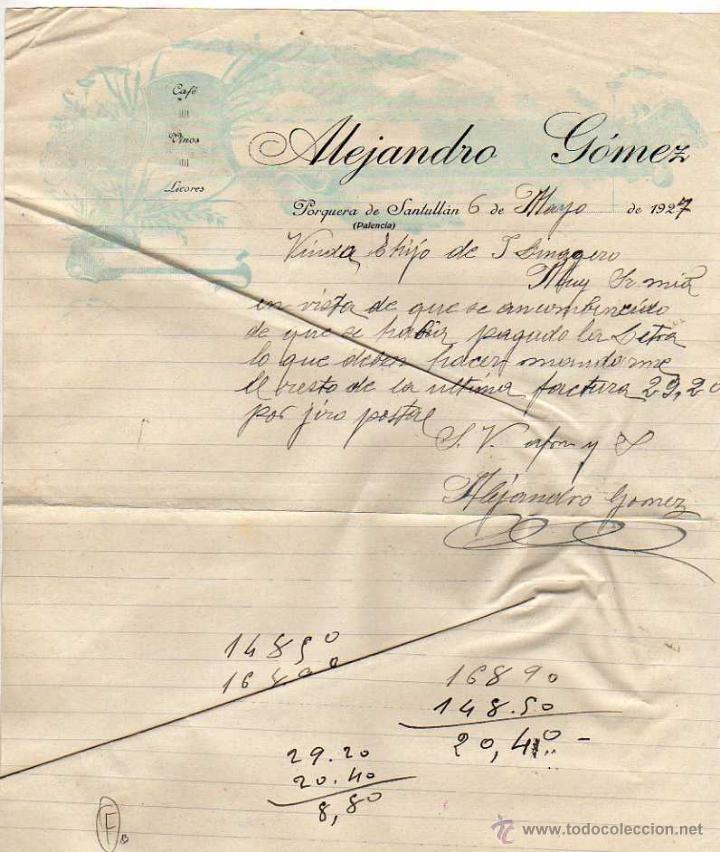 Café
Vinos
Licores
Alejandro Gómez
Porquera de Santullán 6 de Mayo de 1927
(Palencia)
Viuda E hijo de J
Muy Sr mia
en vista de que se an
de que se pagado la Letra
lo que deben hacer mandarme
el resto de la ultima factura 29,20
por jiro postal
S. V. y S
Alejandro Gomez
14850
168
16890
148.50
20,40 -
29.20
20.40
8,80
F
www.todocoleccion.net